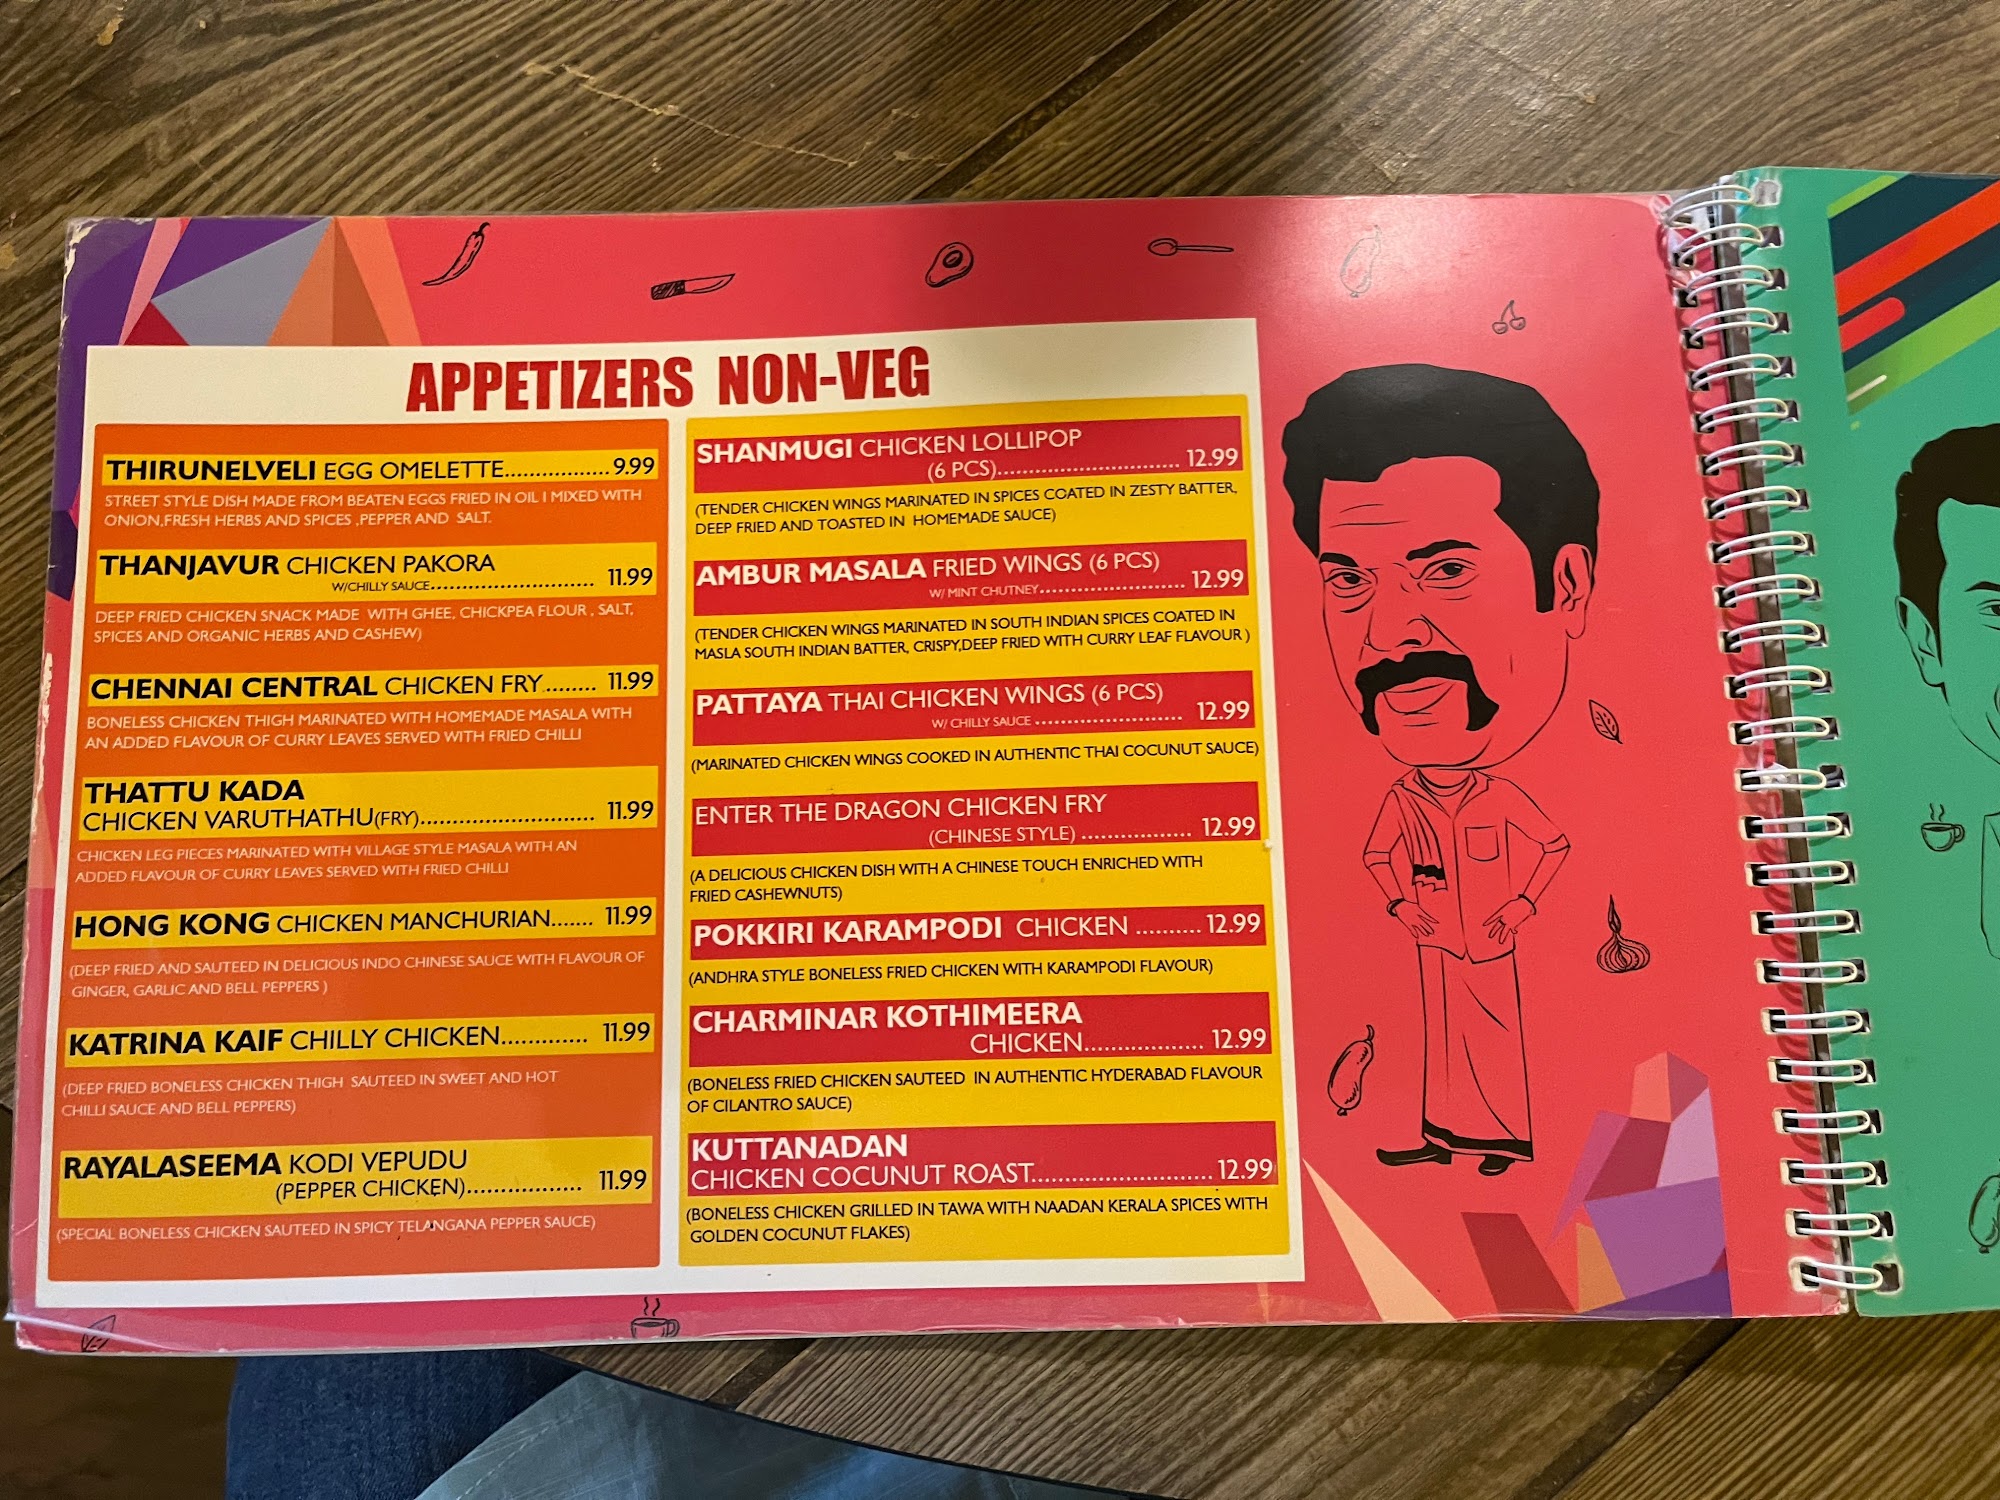 APPETIZERS NON-VEG
THIRUNELVELI EGG OMELETTE..................9.99
STREET STYLE DISH MADE FROM BEATEN EGGS FRIED IN OIL I MIXED WITH
ONION,FRESH HERBS AND SPICES ,PEPPER AND SALT.
THANJAVUR CHICKEN PAKORA
W/CHILLY SAUCE........................... 11.99
DEEP FRIED CHICKEN SNACK MADE WITH GHEE, CHICKPEA FLOUR , SALT,
SPICES AND ORGANIC HERBS AND CASHEW)
CHENNAI CENTRAL CHICKEN FRY......... 11.99
BONELESS CHICKEN THIGH MARINATED WITH HOMEMADE MASALA WITH
AN ADDED FLAVOUR OF CURRY LEAVES SERVED WITH FRIED CHILLI
THATTU KADA
CHICKEN VARUTHATHU(FRY)........................... 11.99
CHICKEN LEG PIECES MARINATED WITH VILLAGE STYLE MASALA WITH AN
ADDED FLAVOUR OF CURRY LEAVES SERVED WITH FRIED CHILLI
HONG KONG CHICKEN MANCHURIAN....... 11.99
(DEEP FRIED AND SAUTEED IN DELICIOUS INDO CHINESE SAUCE WITH FLAVOUR OF
GINGER, GARLIC AND BELL PEPPERS )
KATRINA KAIF CHILLY CHICKEN............. 11.99
(DEEP FRIED BONELESS CHICKEN THIGH SAUTEED IN SWEET AND HOT
CHILLI SAUCE AND BELL PEPPERS)
RAYALASEEMA KODI VEPUDU
(PEPPER CHICKEN)................. 11.99
(SPECIAL BONELESS CHICKEN SAUTEED IN SPICY TELANGANA PEPPER SAUCE)
SHANMUGI CHICKEN LOLLIPOP
(6 PCS)............................. 12.99
(TENDER CHICKEN WINGS MARINATED IN SPICES COATED IN ZESTY BATTER,
DEEP FRIED AND TOASTED IN HOMEMADE SAUCE)
AMBUR MASALA FRIED WINGS (6 PCS)
W/ MINT CHUTNEY...................... 12.99
(TENDER CHICKEN WINGS MARINATED IN SOUTH INDIAN SPICES COATED IN
MASLA SOUTH INDIAN BATTER, CRISPY,DEEP FRIED WITH CURRY LEAF FLAVOUR )
PATTAYA THAI CHICKEN WINGS (6 PCS)
W/ CHILLY SAUCE ....................... 12.99
(MARINATED CHICKEN WINGS COOKED IN AUTHENTIC THAI COCUNUT SAUCE)
ENTER THE DRAGON CHICKEN FRY
(CHINESE STYLE) ................. 12.99
(A DELICIOUS CHICKEN DISH WITH A CHINESE TOUCH ENRICHED WITH
FRIED CASHEWNUTS)
POKKIRI KARAMPODI CHICKEN .......... 12.99
(ANDHRA STYLE BONELESS FRIED CHICKEN WITH KARAMPODI FLAVOUR)
CHARMINAR KOTHIMEERA
CHICKEN.................. 12.99
(BONELESS FRIED CHICKEN SAUTEED IN AUTHENTIC HYDERABAD FLAVOUR
OF CILANTRO SAUCE)
KUTTANADAN
CHICKEN COCUNUT ROAST........................... 12.99
(BONELESS CHICKEN GRILLED IN TAWA WITH NAADAN KERALA SPICES WITH
GOLDEN COCUNUT FLAKES)